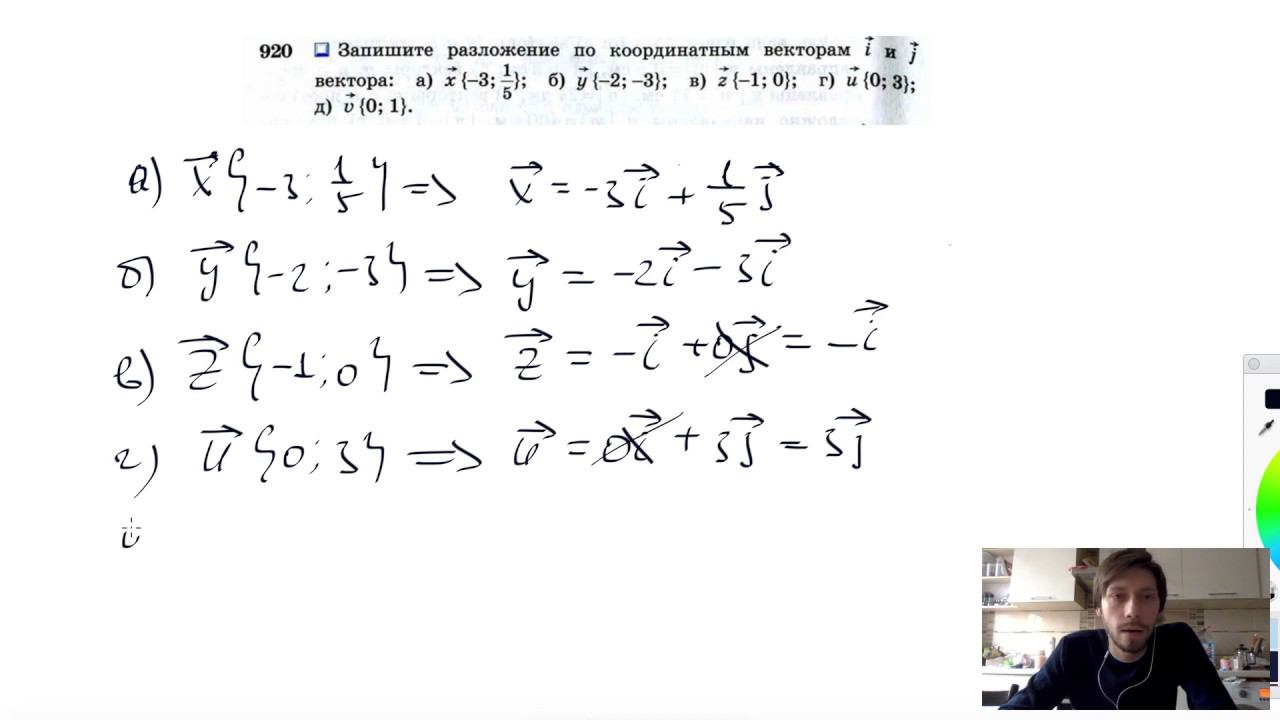 920 Запишите разложение по координатным векторам i⃗ и j⃗
вектора: а) x⃗ {−3; 1/5}; б) y⃗ {−2; −3}; в) z⃗ {−1; 0}; г) u⃗ {0; 3};
д) v⃗ {0; 1}.
а) x⃗ {−3; 1/5} => x⃗ = −3i⃗ + 1/5 j⃗
б) y⃗ {−2; −3} => y⃗ = −2i⃗ − 3i⃗
в) z⃗ {−1; 0} => z⃗ = −i⃗ + 0j⃗ = −i⃗
г) u⃗ {0; 3} => u⃗ = 0i⃗ + 3j⃗ = 3j⃗